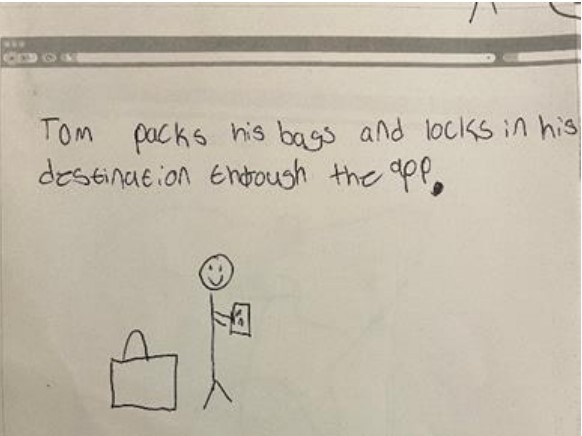 Tom packs his bags and locks in his
destination through the app.